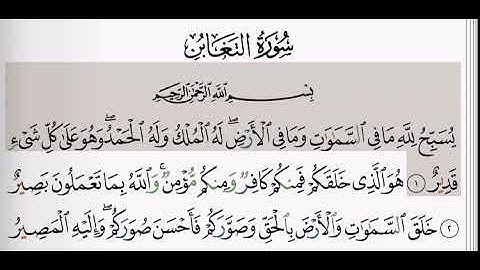 سُورَةُ التَّغَابُنِ
بِسْمِ اللَّهِ الرَّحْمَٰنِ الرَّحِيمِ
يُسَبِّحُ لِلَّهِ مَا فِي السَّمَٰوَٰتِ وَمَا فِي الْأَرْضِ ۖ لَهُ الْمُلْكُ وَلَهُ الْحَمْدُ ۖ وَهُوَ عَلَىٰ كُلِّ شَيْءٍ
قَدِيرٌ ١ هُوَ الَّذِي خَلَقَكُمْ فَمِنكُمْ كَافِرٌ وَمِنكُم مُّؤْمِنٌ ۚ وَاللَّهُ بِمَا تَعْمَلُونَ بَصِيرٌ
٢ خَلَقَ السَّمَٰوَٰتِ وَالْأَرْضَ بِالْحَقِّ وَصَوَّرَكُمْ فَأَحْسَنَ صُوَرَكُمْ ۖ وَإِلَيْهِ الْمَصِيرُ